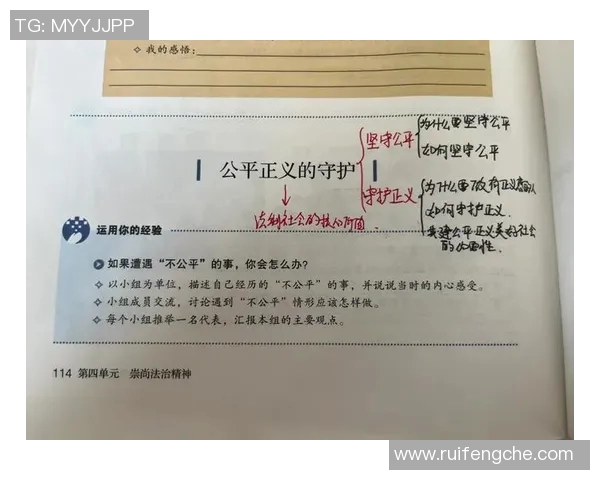 TG: MYYJJPP
我的感悟:
公平正义的守护
坚守公平
为什么要坚守公平
如何坚守公平
守护正义
如何守护正义.
共建公平正义美好社会
的必要性.
法制社会的核心价值
运用你的经验
如果遭遇“不公平”的事，你会怎么办?
以小组为单位，描述自己经历的“不公平”的事，并说说当时的内心感受。
小组成员交流，讨论遇到“不公平”情形应该怎样做。
每个小组推举一名代表，汇报本组的主要观点。
114 第四单元 崇尚法治精神
www.ruifengche.com